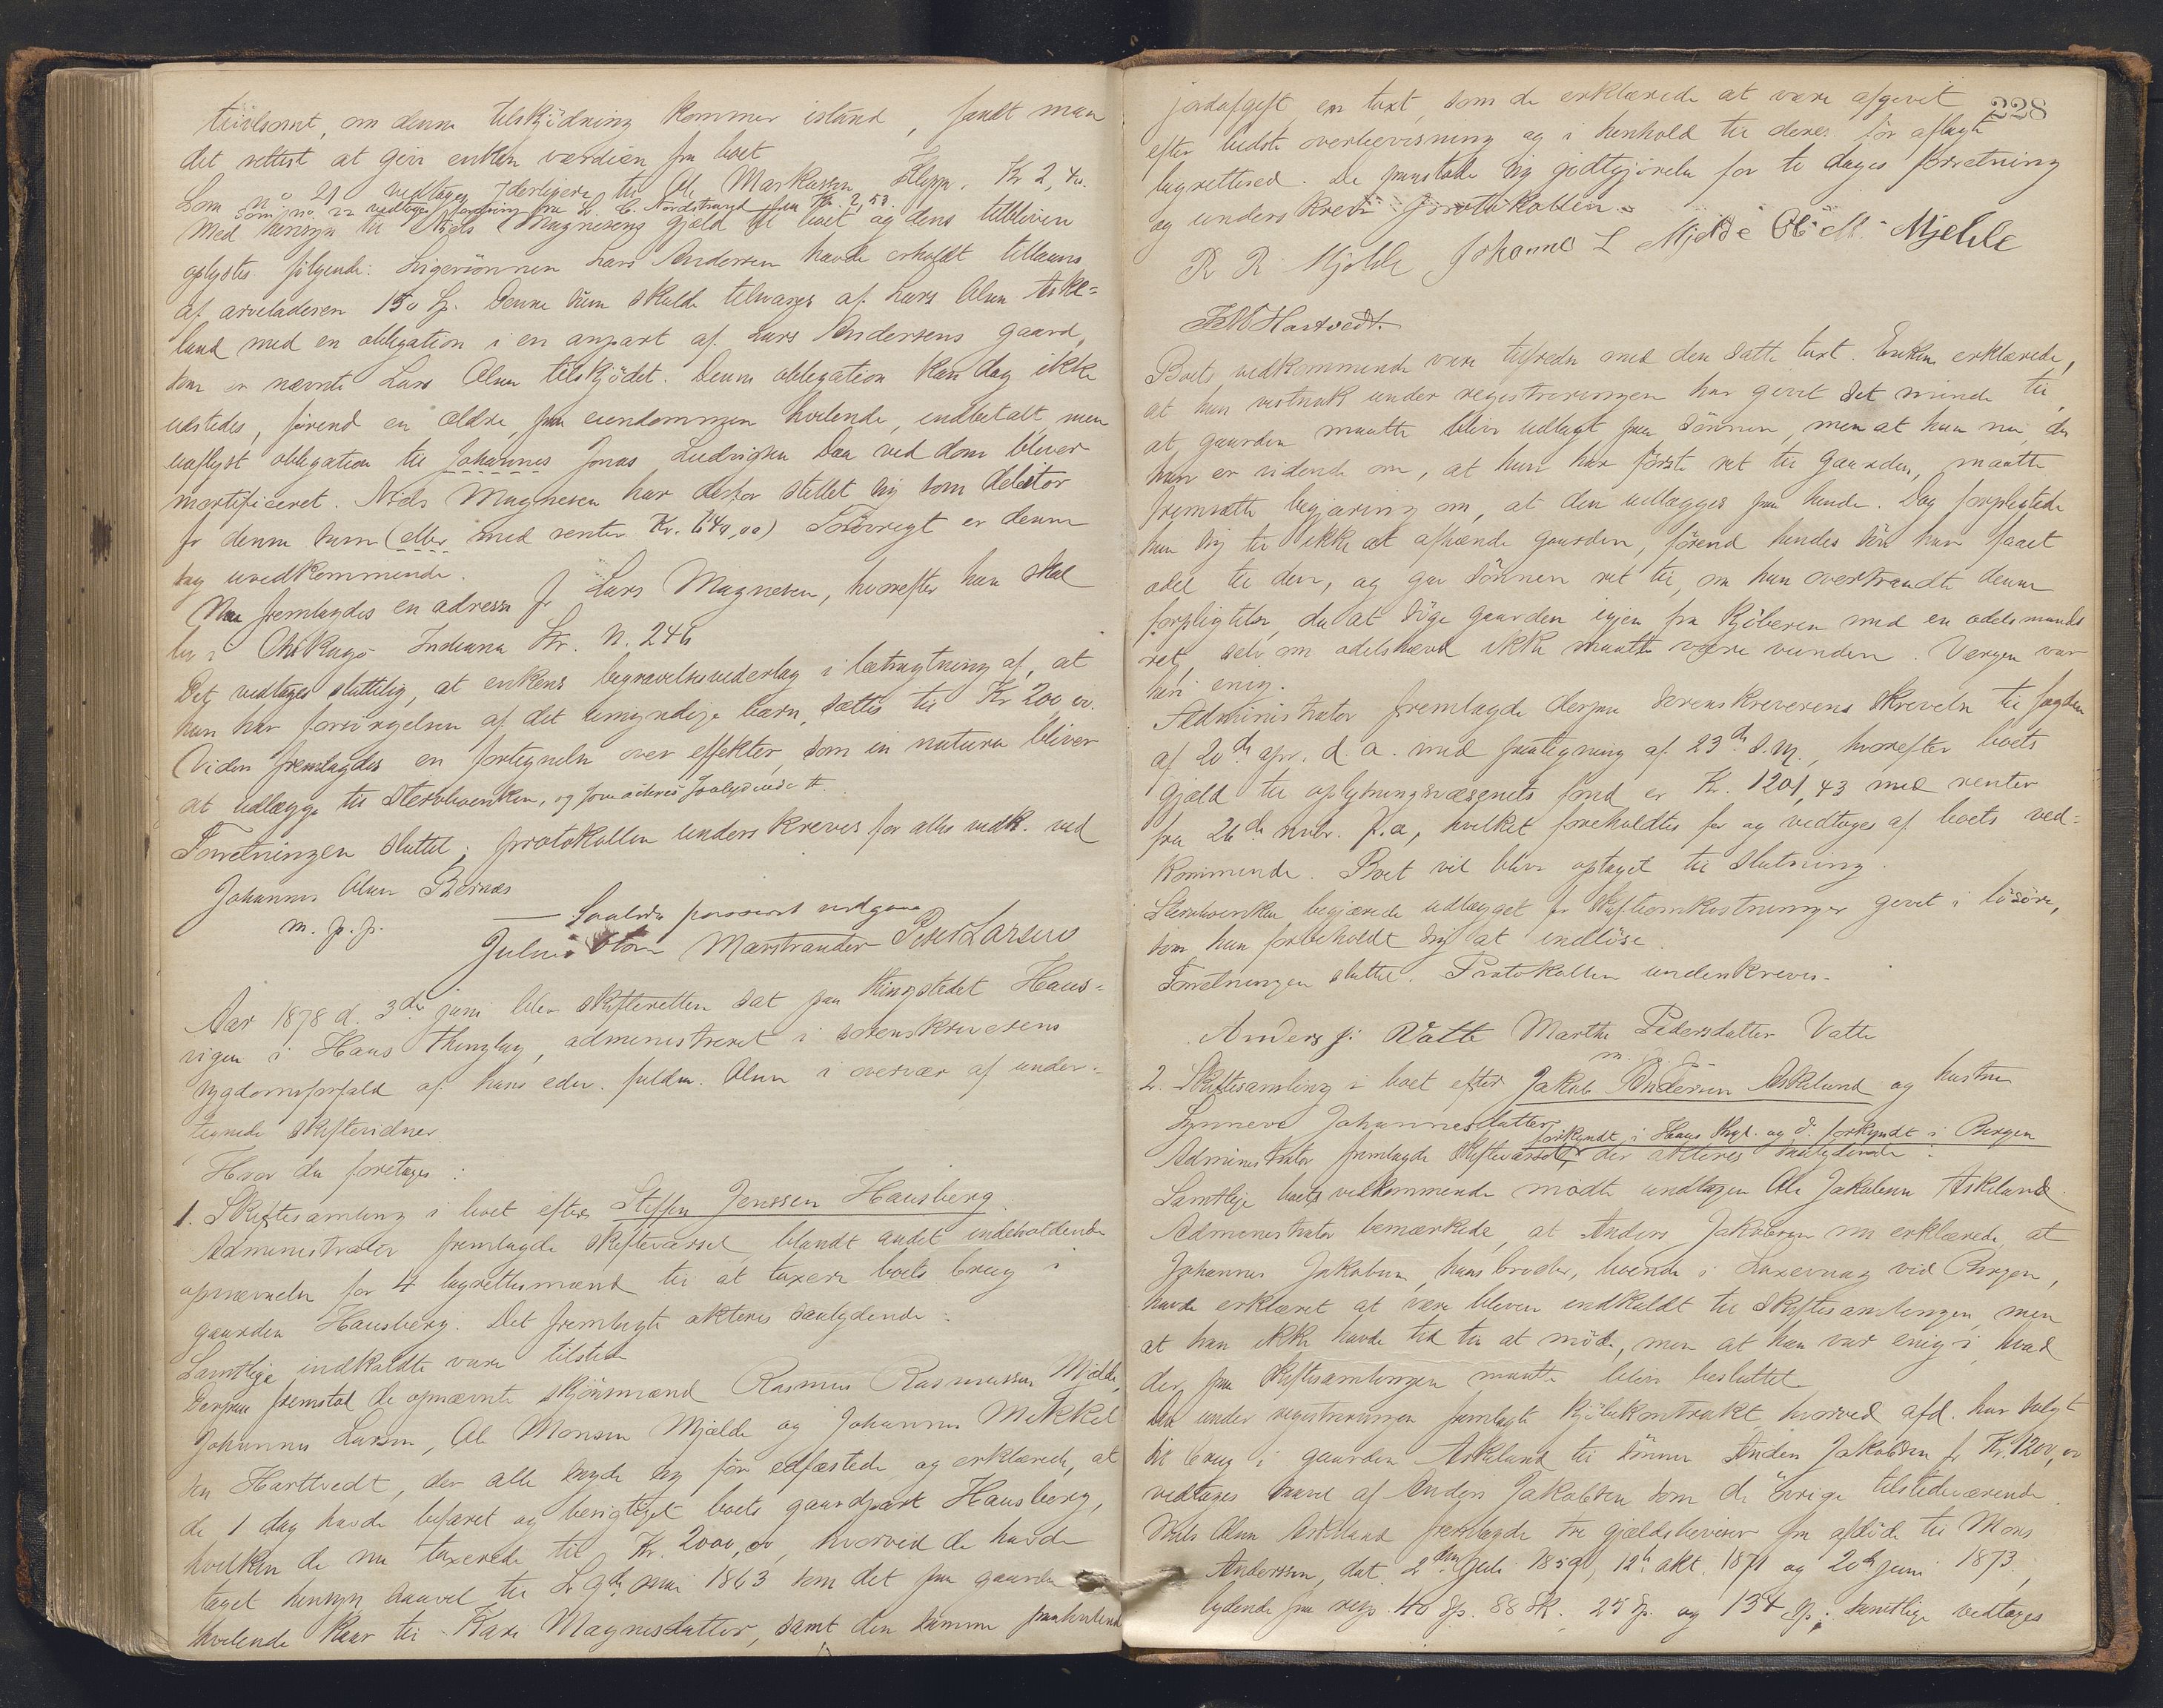 tvivlsomt, om denne tilskjödning kommer istand, fandt man
det rettest at give enken værdien fra boet
Som no 21 vedtages yderligere til Ole Markussen Klepp. Kr 2,40.
Som no. 22 vedtages fordring fra L. C. Nordstrand paa Kr. 2,53.
Med hensyn til Niels Magnesens gjæld til boet og dens tilbliven
oplystes følgende: Svigersönnen Lars Andersen havde erholdt tillaans
af arveladeren 150 Sp. Denne sum skulde tilsvares af Lars Olsen Aske-
land med en obligation i en anpart af Lars Andersens gaard,
som er nævnte Lars Olsen tilskjödet. Denne obligation kan dog ikke
udstedes, förend en ældre, paa eiendommen hvilende, indbetalt, men
uaflyst obligation til Johannes Jonas Ludvigsen Daa ved dom bliver
mortificeret. Niels Magnesen har derfor stillet sig som debitor
for denne sum (eller med renter Kr. 640,00) Forövrigt er denne
sag uvedkommende.
Man fremlagdes en adresse for Lars Magnesen, hvorefter han skal
bo i Chikago Indiana Str. N. 246
Det vedtages sluttelig, at enkens begravelsesvederlag i betragtning af, at
hun har forsörgelsen af det umyndige barn, sættes til Kr 200,00.
Viden fremlagdes en fortegnelse over effekter, som in natura bliver
at udlægge til Stervboenken, og som akteres saalydende #.
Forretningen sluttet; protokollen underskreves for alles vedk. ved
Johannes Olsen Börnæs
m. p. p.
— Saaledes passeret vidgaar
Julius Olsen Marstrander Peter Larsen
Aar 1878 d. 3die juni blev skifteretten sat paa thingstedet Haus-
vigen i Haus thinglag, administreret i sorenskriverens
sygdomsforfald af hans edsv. fuldm. Olsen i overvær af under-
tegnede skiftevidner
Hvor da foretoges:
1. Skiftesamling i boet efter Steffen Jenssen Hausberg.
Administrator fremlagde skiftevarsel, blandt andet indeholdende
opnævnelse for 4 lagrettesmænd til at taxere boets brug i
gaarden Hausberg. Det fremlagte akteres saalydende:
Samtlige indkaldte vare tilstede
Derpaa fremstod de opnævnte skjönsmænd Rasmus Rasmussen Mjelde,
Johannes Larsen, Ole Monsen Mjælde og Johannes Mikkel
sen Hartvedt, der alle sagde sig för edfæstede og erklærede, at
de 1 dag havde befaret og besigtiget boets gaardpart Hausberg,
hvilken de nu taxerede til Kr. 2000,00, hvorved de havde
taget hensyn saavel til L 9de mai 1863 som det paa gaarden
hvilende kaar til Kari Magnesdatter, samt den samme paahvilende
228
jordafgift, en taxt, som de erklærede at være afgivet
efter bedste overbevisning og i henhold til deres för aflagte
lagrettesed. De paastode sig godtgjörelse for to dages forretning
og underskrev protokollen.
R R Mjelde Johanne L Mjelde Ole M Mjelde
J M Hartvedt.
Boets vedkommende vare tilfreds med den satte taxt. Enken erklærede,
at hun vistnok under registreringen har givet sit minde til,
at gaarden maatte blive udlagt paa sönnen, men at hun nu, da
hun er vidende om, at hun har förste ret til gaarden, maatte
fremsætte begjæring om, at den udlægges paa hende. Dog forpligtede
hun sig til ikke at afhænde gaarden, förend hendes sön har faaet
odel til den, og gav sönnen ret til, om hun overtraadte denne
forpligtelse, da at söge gaarden igjen fra kjöberen med en odelsmands
ret, selv om odelshævd ikke maatte være vunden. Værgen var
heri enig.
Administrator fremlagde derpaa sorenskriverens skrivelse til fogden
af 20de apr. d. a. med paategning af 23de s. m., hvorefter boets
gjæld til oplysningsvæsenets fond er Kr. 1201,43 med renter
fra 26de novbr. f. a., hvilket foreholdtes for og vedtoges af boets ved-
kommende. Boet vil blive optaget til slutning.
Stervboenken begjærede udlægget for skifteomkostninger givet i lösöre,
som hun forbeholdt sig at indlöse.
Forretningen sluttet. Protokollen underskreves.
Anders J: Vatle Marthe Pedersdatter Vatle
m. p. p.
2. Skiftesamling i boet efter Jakob Andersen Askeland og hustru
Synneve Johannesdatter
forkyndt i Haus thgl. og d. forkyndt i Bergen
Administrator fremlagde skiftevarsel, der akteres saalydende:
Samtlige boets vedkommende mödte undtagen Ole Jakobsen Askeland.
Administrator bemærkede, at Anders Jakobsen nu erklærede, at
Johannes Jakobsen, hans broder, boende i Laxevaag ved Bergen,
havde erklæret at være bleven indkaldt til skiftesamlingen, men
at han ikke havde tid til at möde, men at han var enig i, hvad
der paa skiftesamlingen maatte blive besluttet
Den under registreringen fremlagte kjöbekontrakt hvorved afd. har solgt
sit brug i gaarden Askeland til sönnen Anders Jakobsen for Kr. 1200,00
vedtages saavel af Anders Jakobsen som de övrige tilstedeværende.
Niels Olsen Askeland fremlagde tre gjældsbeviser fra afdöde til Mons
Andersen, dat. 2den juli 1859, 12te okt. 1871 og 20de juni 1873,
lydende paa resp. 40 Sp. 88 Sk., 25 Sp. og 134 Sp.; samtlige vedtages